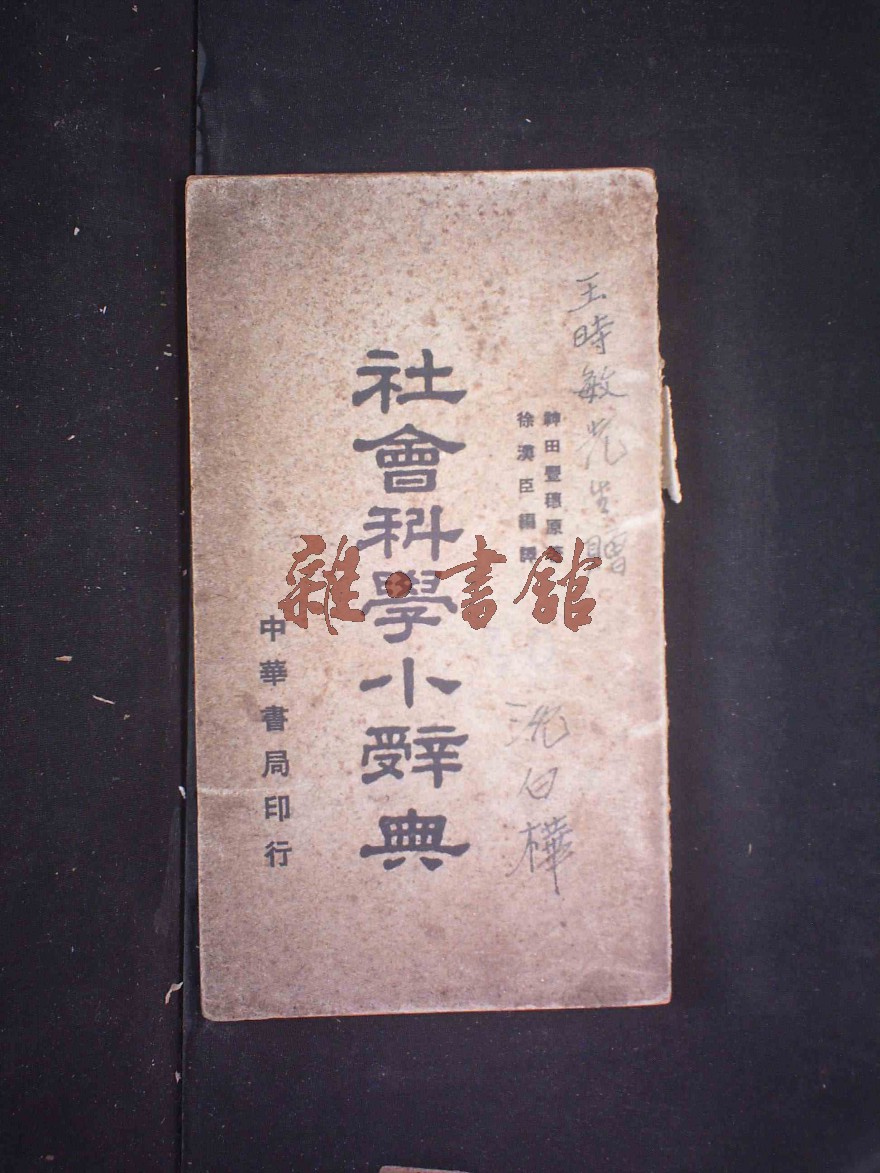 王時敏先生贈
神田豐穗原著
徐漢臣編譯
社會科學小辭典
中華書局印行
沈白樺
雜·書館